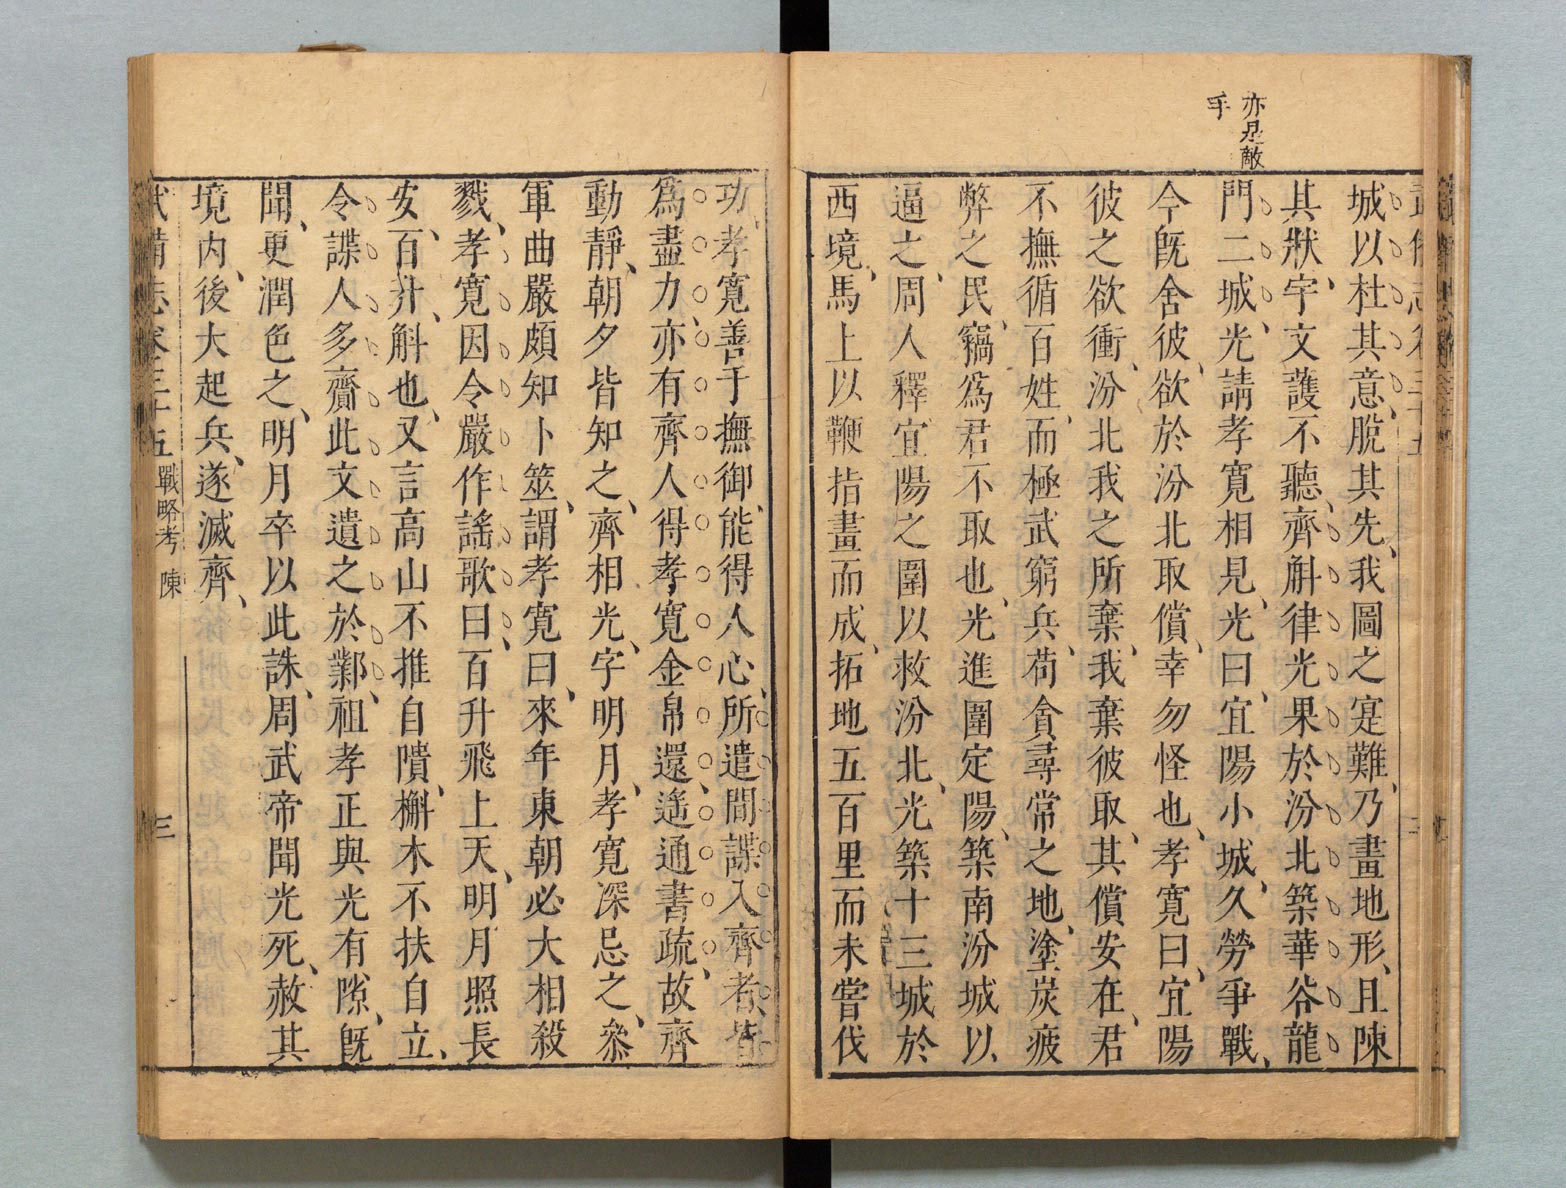 亦是敵
手
城以杜其意脫其先我圖之寔難乃畫地形且陳
其狀宇文護不聽齊斛律光果於汾北築華谷龍
門二城光請孝寬相見光曰宜陽小城久勞爭戰
今旣舍彼欲於汾北取償幸勿怪也孝寬曰宜陽
彼之欲衝汾北我之所棄我棄彼取其償安在君
不撫循百姓而極武窮兵苟貪尋常之地塗炭疲
弊之民竊爲君不取也光進圍定陽築南汾城以
逼之周人釋宜陽之圍以救汾北光築十三城於
西境馬上以鞭指畫而成拓地五百里而未嘗伐
功孝寬善于撫御能得人心所遣間諜入齊者皆
爲盡力亦有齊人得孝寬金帛還遙通書疏故齊
動靜朝夕皆知之齊相光字明月孝寬深忌之叅
軍曲嚴頗知卜筮謂孝寬曰來年東朝必大相殺
戮孝寬因令嚴作謠歌曰百升飛上天明月照長
安百升斛也又言高山不推自隤槲木不扶自立
令諜人多齎此文遺之於鄴祖孝正與光有隙旣
聞更潤色之明月卒以此誅周武帝聞光死赦其
境內後大起兵遂滅齊
武備志卷三十五 戰略考 陳 三